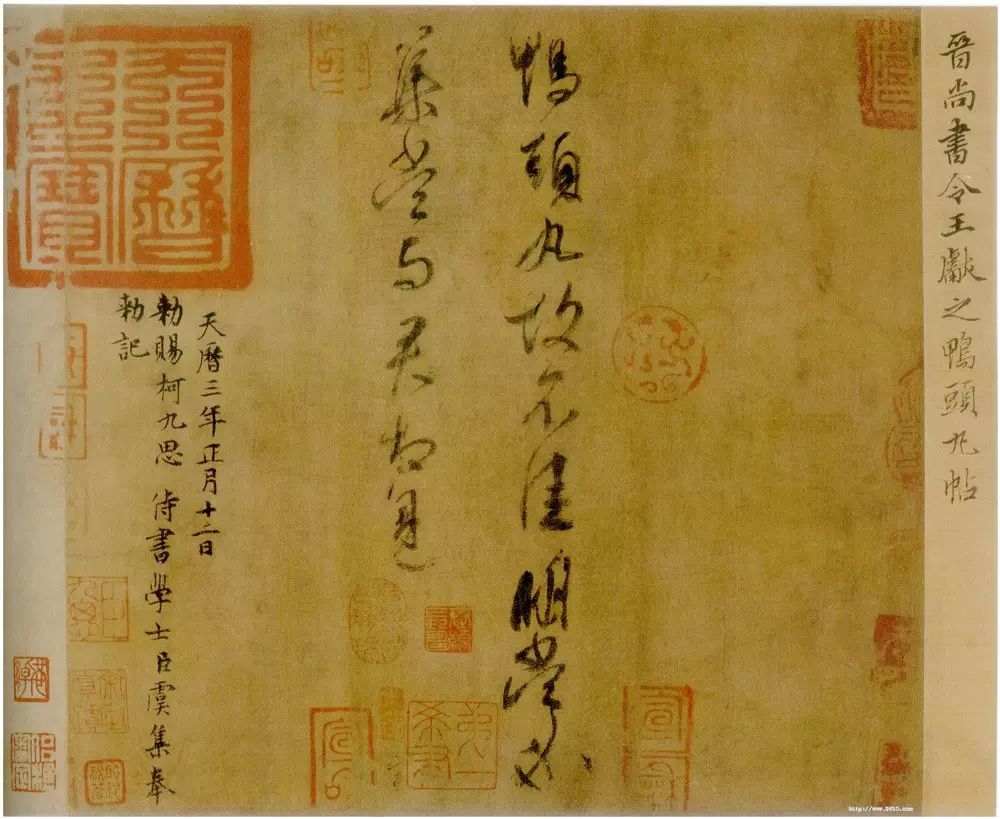 晉尚書令王獻之鴨頭丸帖
鴨頭丸故不佳明當必
集當与君相見
天曆之寶
天曆三年正月十二日
勅賜柯九思侍書學士臣虞集奉
勅記
http://www.9610.com